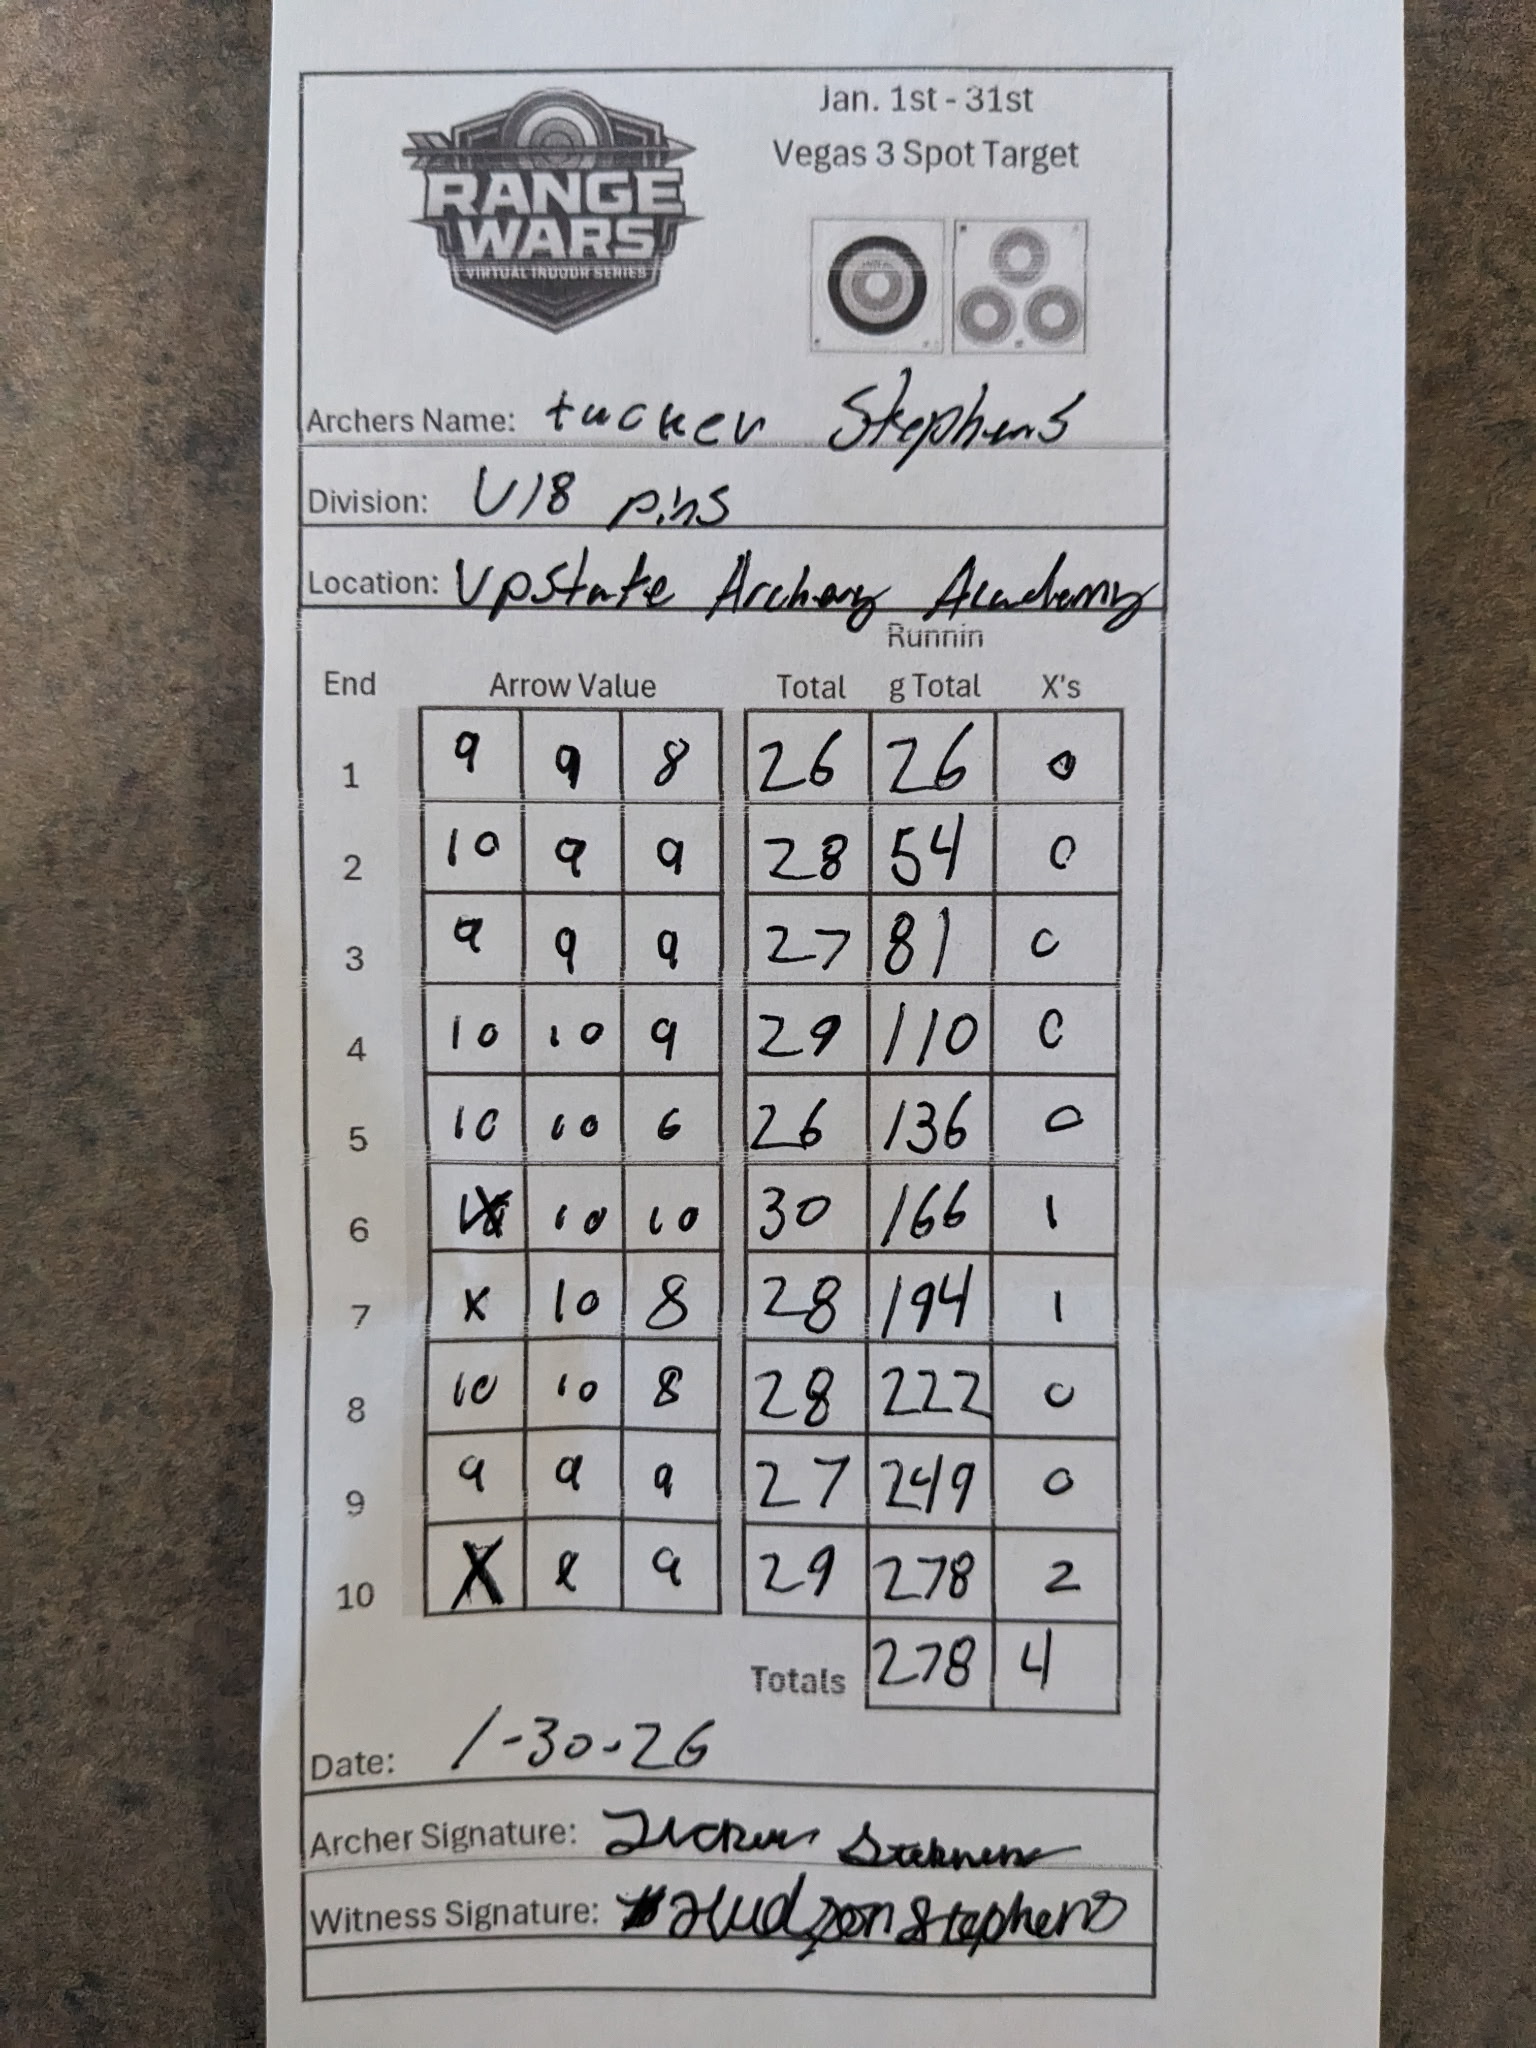 RANGE
WARS
VIRTUAL INDOOR SERIES
Jan. 1st - 31st
Vegas 3 Spot Target
Archers Name: tucker Stephens
Division: U18 pins
Location: Upstate Archery Academy
End Arrow Value Total Runnin g Total X's
1 9 9 8 26 26 0
2 10 9 9 28 54 0
3 9 9 9 27 81 0
4 10 10 9 29 110 0
5 10 10 6 26 136 0
6 X 10 10 30 166 1
7 x 10 8 28 194 1
8 10 10 8 28 222 0
9 9 9 9 27 249 0
10 X x 9 29 278 2
Totals 278 4
Date: 1-30-26
Archer Signature: Tucker Stephens
Witness Signature: Hudson Stephens